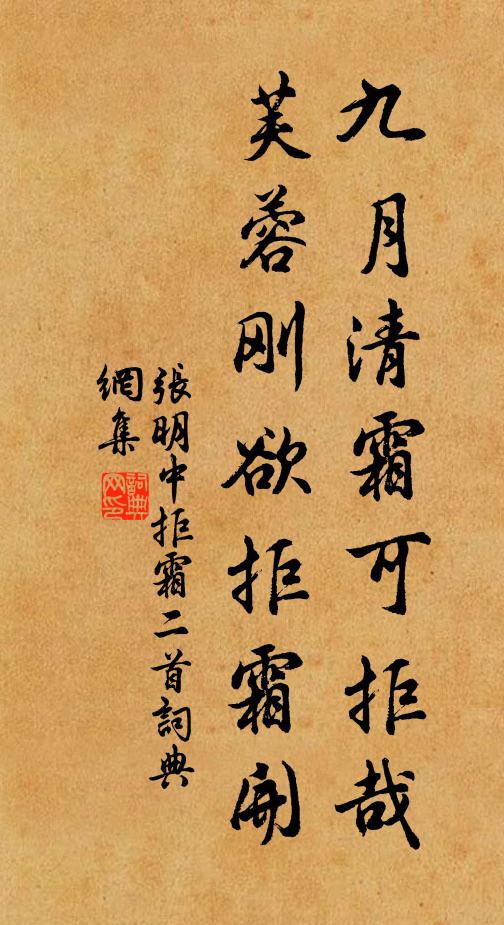 九月清霜可拒哉
芙蓉刚欲拒霜開
張明中拒霜二首詞典
網集
詞典
网印